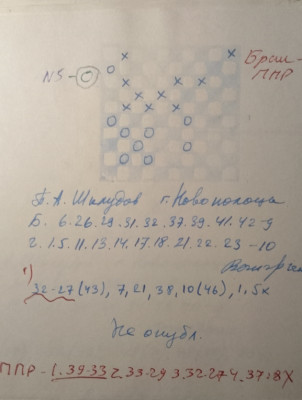 N5 - O
Браш -
ППР
П. А. Шклудов г. Новополоцк
Б. 6. 26. 29. 31. 32. 37. 39. 41. 42 - 9
г. 1. 5. 11. 13. 14. 17. 18. 21. 22. 23 - 10
Выигрыш
1) 32-27 (43), 7, 21, 38, 10 (46), 1, 5x
Не опубл.
ППР - 1. 39-33 2. 33-29 3. 32-27 4. 37:8X